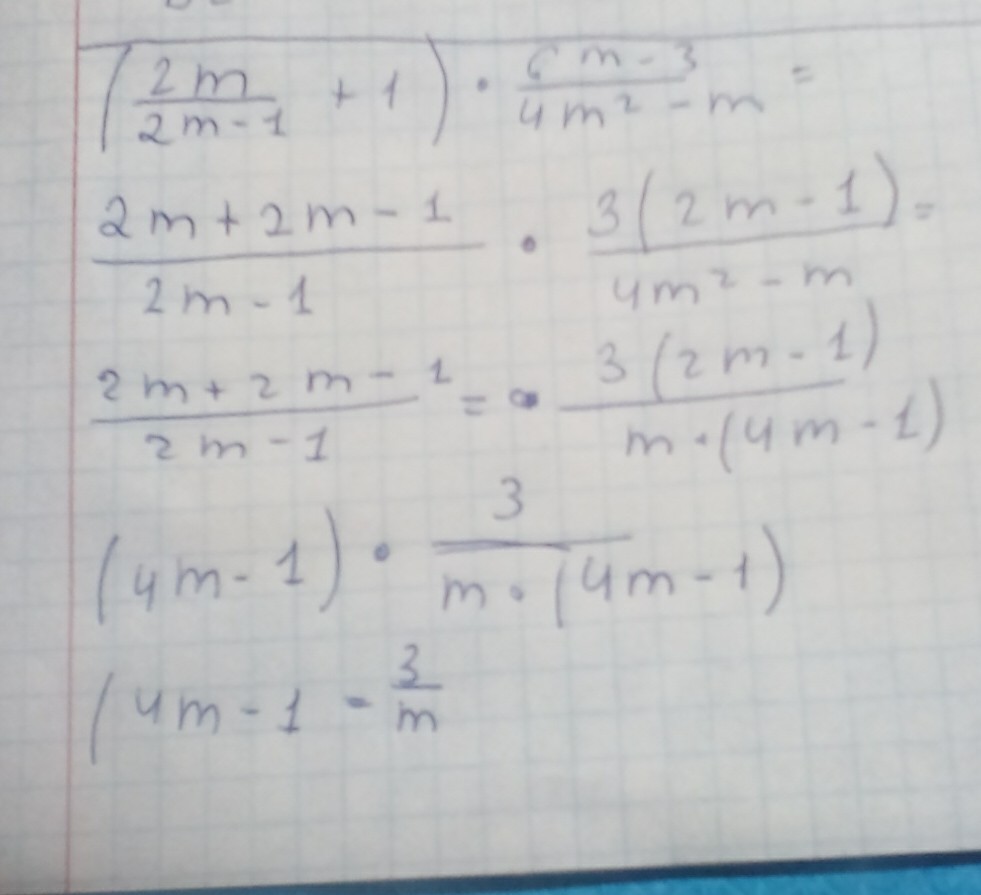 (2m/(2m-1) + 1) · (6m-3)/(4m²-m) =
(2m+2m-1)/(2m-1) · 3(2m-1)/(4m²-m) =
(2m+2m-1)/(2m-1) = · 3(2m-1)/(m·(4m-1))
(4m-1) · 3/(m·(4m-1))
(4m-1 - 3/m